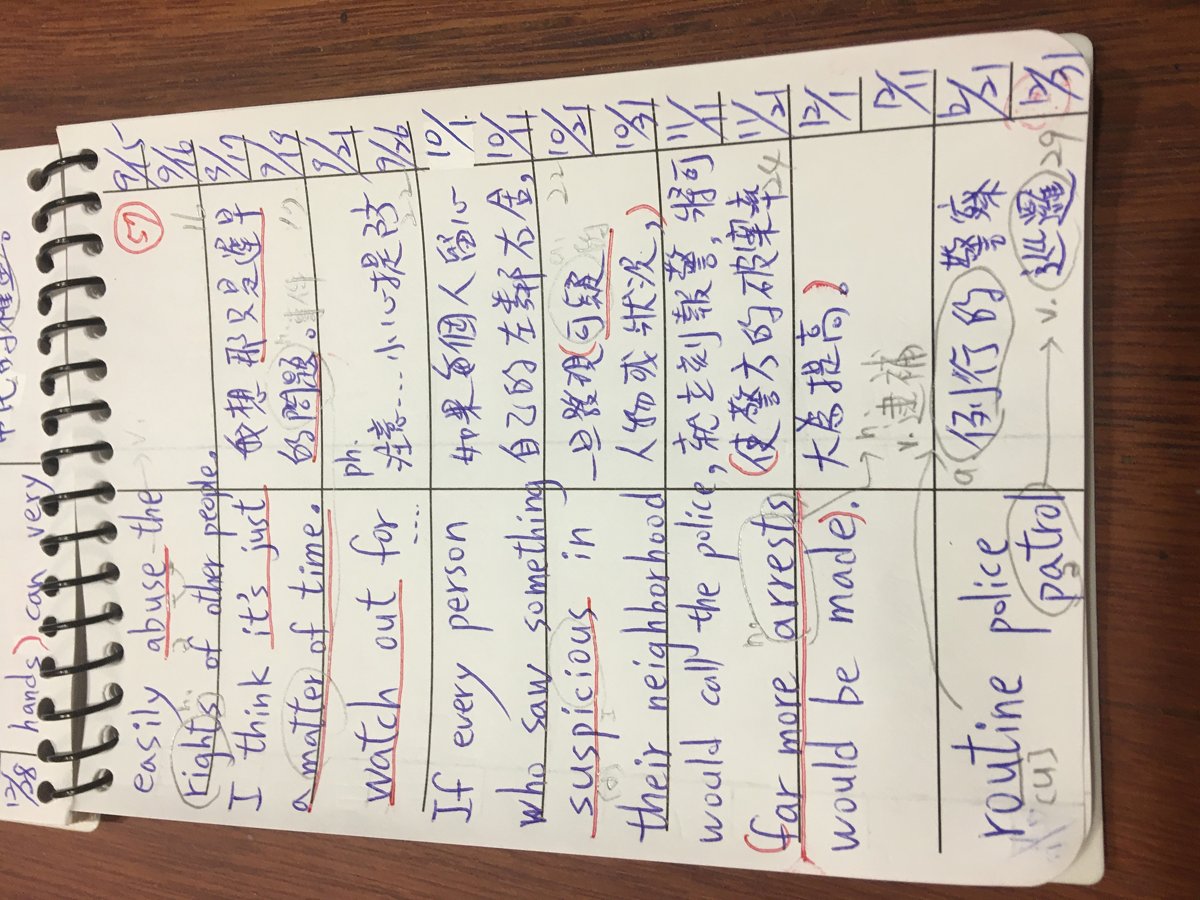 12/28 hands) can very
57
easily abuse the → v.
rights of other people.
n.
I think it's just
a matter of time.
Watch out for ....
If every person
who saw something
suspicious in
their neighborhood
would call the police,
(far more arrests
n.
would be made).
routine police
[u]
patrol
般想 那只是遲早
的問題。事件
ph.
注意....小心提防
如果每個人留心
自己的左鄰右舍,
一旦發現可疑
人物或狀況,
就立刻報警,將可
(使警大的破案率
大為提高)。
n.
v. 逮捕
a
例行的 警察
v. 巡邏
9/15
9/16
9/17
9/19
9/21
9/26
10/1
10/11
10/21
10/31
11/11
11/21
12/1
12/11
12/21
12/31
16
17
22
22
24
29